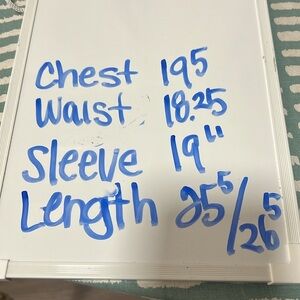 Chest 195
Waist 18.25
Sleeve 19"
Length 25⁵/26⁵